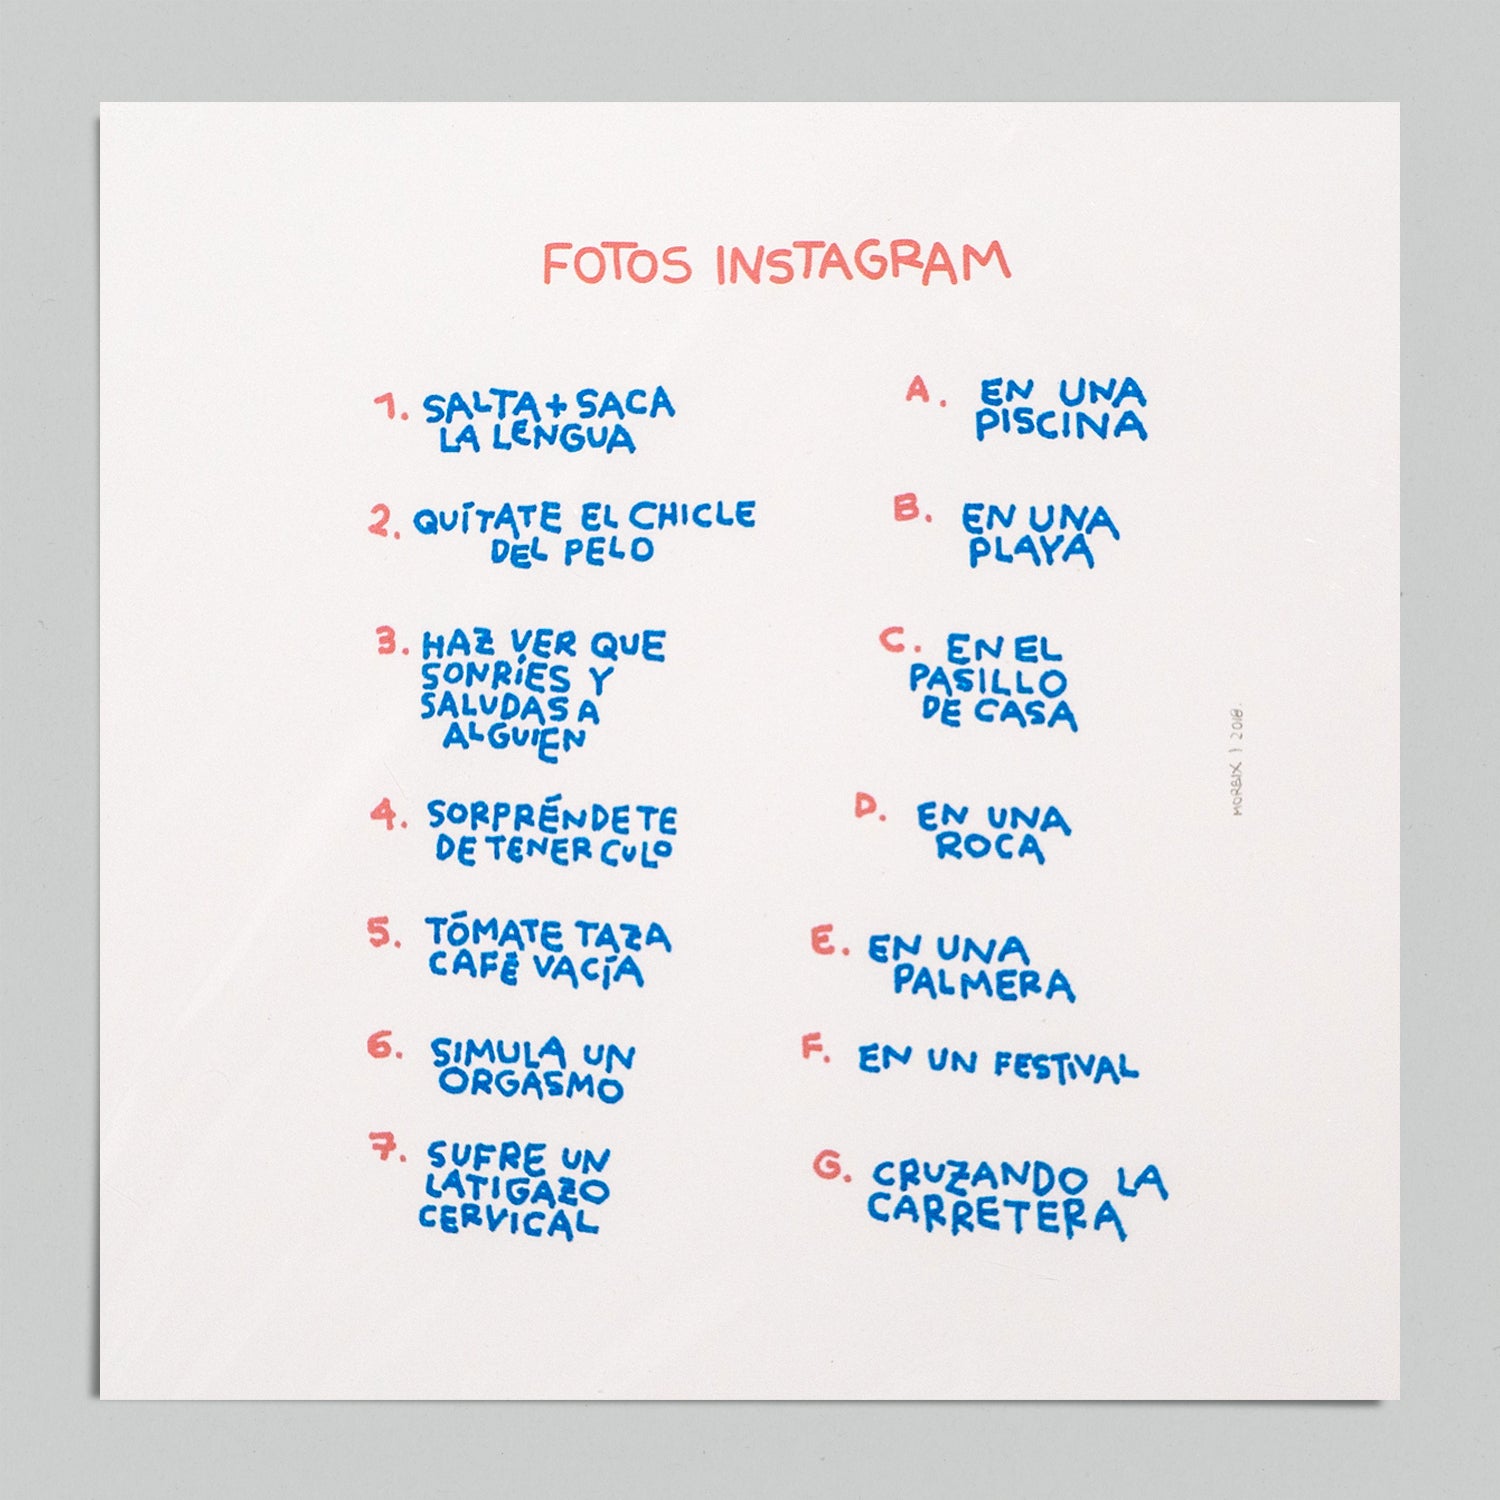 FOTOS INSTAGRAM
1. SALTA + SACA
LA LENGUA
2. QUÍTATE EL CHICLE
DEL PELO
3. HAZ VER QUE
SONRÍES Y
SALUDAS A
ALGUIEN
4. SORPRÉNDETE
DE TENER CULO
5. TÓMATE TAZA
CAFÉ VACÍA
6. SIMULA UN
ORGASMO
7. SUFRE UN
LATIGAZO
CERVICAL
A. EN UNA
PISCINA
B. EN UNA
PLAYA
C. EN EL
PASILLO
DE CASA
D. EN UNA
ROCA
E. EN UNA
PALMERA
F. EN UN FESTIVAL
G. CRUZANDO LA
CARRETERA
MORBIX | 2018.